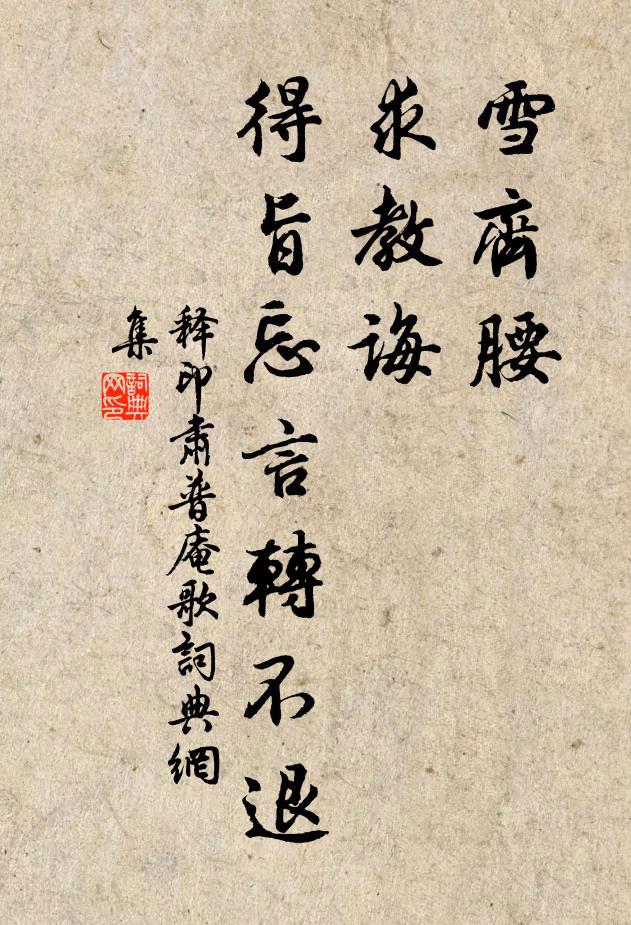 雪齊腰
求教誨
得旨忘言轉不退
释印肅普庵歌詞典網
集
詞典
网印